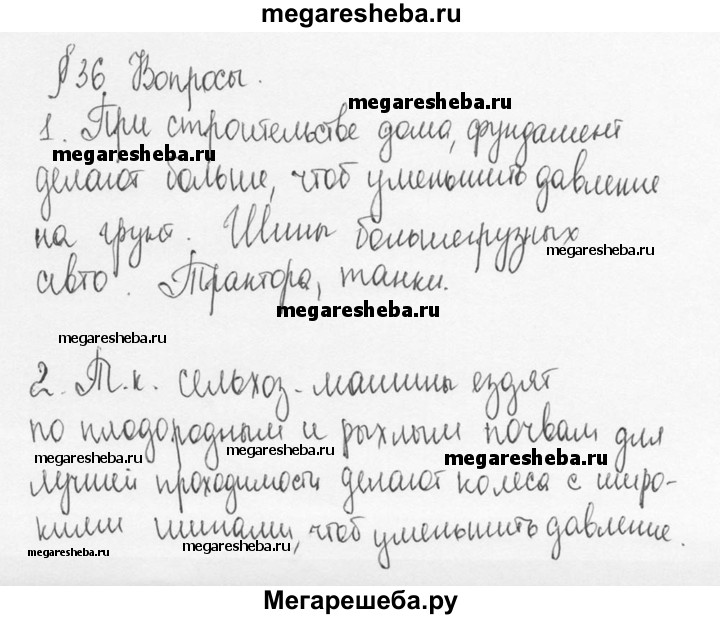 megaresheba.ru
§ 36 Вопросы.
megaresheba.ru
1. При строительстве дома, фундамент
megaresheba.ru
делают больше, чтоб уменьшить давление
на грунт. Шины большегрузных
megaresheba.ru
авто. Трактора, танки.
megaresheba.ru
megaresheba.ru
2. Т.к. сельхоз-машины ездят
по плодородным и рыхлым почвам для
megaresheba.ru megaresheba.ru megaresheba.ru
лучшей проходимости делают колеса с широ-
кими шипами, чтоб уменьшить давление.
megaresheba.ru megaresheba.ru megaresheba.ru
Мегарешеба.ру